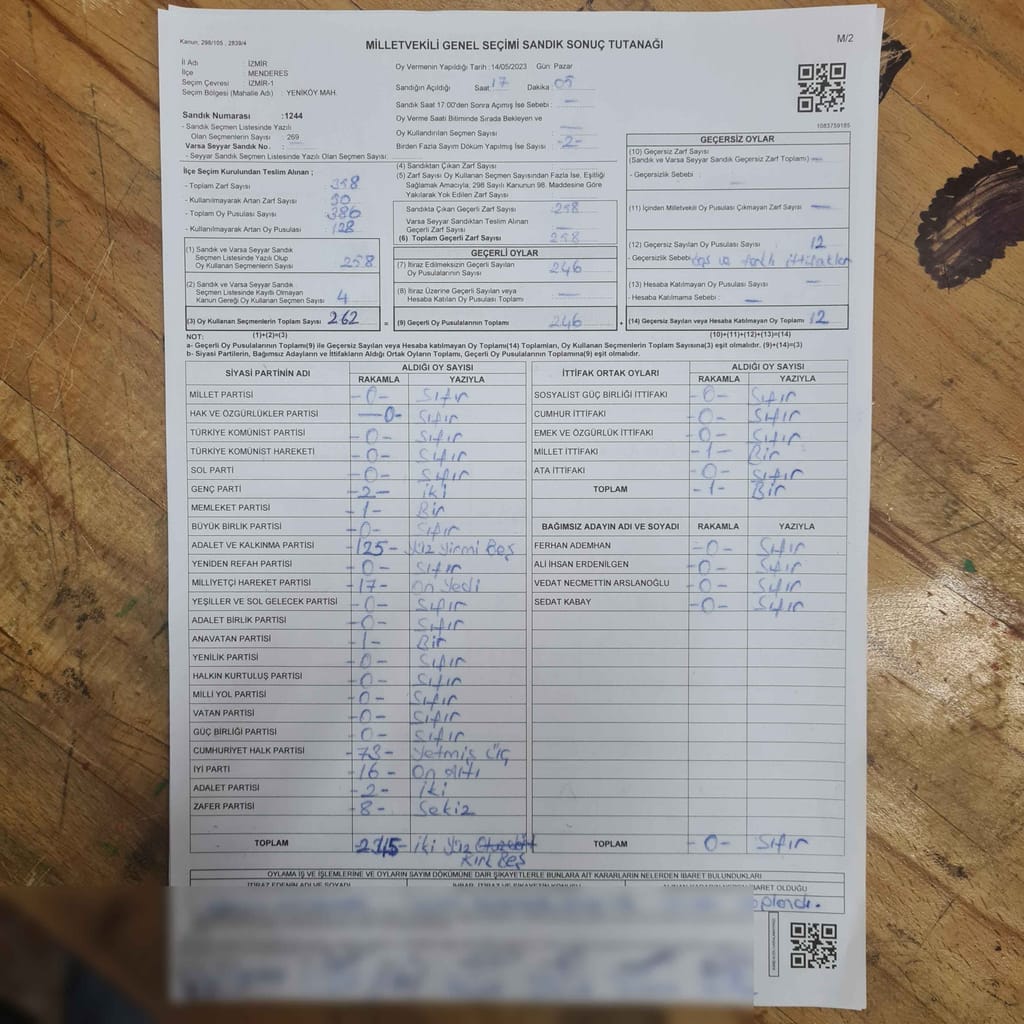 Kanun, 298/105 , 2839/4
MİLLETVEKİLİ GENEL SEÇİMİ SANDIK SONUÇ TUTANAĞI
M/2
İl Adı : İZMİR
İlçe : MENDERES
Seçim Çevresi : İZMİR-1
Seçim Bölgesi (Mahalle Adı) : YENİKÖY MAH.
Sandık Numarası :1244
- Sandık Seçmen Listesinde Yazılı
Olan Seçmenlerin Sayısı : 269
Varsa Seyyar Sandık No. :
- Seyyar Sandık Seçmen Listesinde Yazılı Olan Seçmen Sayısı:
Oy Vermenin Yapıldığı Tarih : 14/05/2023 Gün: Pazar
Sandığın Açıldığı Saat: 17 Dakika 05
Sandık Saat 17:00'den Sonra Açımış İse Sebebi : —
Oy Verme Saati Bitiminde Sırada Bekleyen ve
Oy Kullandırılan Seçmen Sayısı : —
Birden Fazla Sayım Döküm Yapılmış İse Sayısı : -2-
1083759185
İlçe Seçim Kurulundan Teslim Alınan ;
- Toplam Zarf Sayısı
- Kullanılmayarak Artan Zarf Sayısı
- Toplam Oy Pusulası Sayısı 386
- Kullanılmayarak Artan Oy Pusulası 128
(1) Sandık ve Varsa Seyyar Sandık
Seçmen Listesinde Yazılı Olup
Oy Kullanan Seçmenlerin Sayısı 258
(2) Sandık ve Varsa Seyyar Sandık
Seçmen Listesinde Kayıtlı Olmayan
Kanun Gereği Oy Kullanan Seçmen Sayısı 4
(3) Oy Kullanan Seçmenlerin Toplam Sayısı 262 =
(4) Sandıktan Çıkan Zarf Sayısı
(5) Zarf Sayısı Oy Kullanan Seçmen Sayısından Fazla İse, Eşitliği
Sağlamak Amacıyla, 298 Sayılı Kanunun 98. Maddesine Göre
Yakılarak Yok Edilen Zarf Sayısı —
Sandıkta Çıkan Geçerli Zarf Sayısı 258
Varsa Seyyar Sandıktan Teslim Alınan
Geçerli Zarf Sayısı —
(6) Toplam Geçerli Zarf Sayısı 258
GEÇERLİ OYLAR
(7) İtiraz Edilmeksizin Geçerli Sayılan
Oy Pusulalarının Sayısı 246
(8) İtiraz Üzerine Geçerli Sayılan veya
Hesaba Katılan Oy Pusulası Toplamı —
(9) Geçerli Oy Pusulalarının Toplamı 246 +
GEÇERSİZ OYLAR
(10) Geçersiz Zarf Sayısı
(Sandık ve Varsa Seyyar Sandık Geçersiz Zarf Toplamı) —
- Geçersizlik Sebebi : —
(11) İçinden Milletvekili Oy Pusulası Çıkmayan Zarf Sayısı —
(12) Geçersiz Sayılan Oy Pusulası Sayısı 12
- Geçersizlik Sebebi ve farklı ittifaklar
(13) Hesaba Katılmayan Oy Pusulası Sayısı —
- Hesaba Katılmama Sebebi : —
(14) Geçersiz Sayılan veya Hesaba Katılmayan Oy Toplamı 12
NOT: (1)+(2)=(3) (10)+(11)+(12)+(13)=(14)
a- Geçerli Oy Pusulalarının Toplamı(9) ile Geçersiz Sayılan veya Hesaba Katılmayan Oy Toplamı(14) Toplamları, Oy Kullanan Seçmenlerin Toplam Sayısına(3) eşit olmalıdır. (9)+(14)=(3)
b- Siyasi Partilerin, Bağımsız Adayların ve İttifakların Aldığı Ortak Oyların Toplamı, Geçerli Oy Pusulalarının Toplamına(9) eşit olmalıdır.
SİYASİ PARTİNİN ADI ALDIĞI OY SAYISI
RAKAMLA YAZIYLA
MİLLET PARTİSİ -0- Sıfır
HAK VE ÖZGÜRLÜKLER PARTİSİ —0- Sıfır
TÜRKİYE KOMÜNİST PARTİSİ -0- Sıfır
TÜRKİYE KOMÜNİST HAREKETİ -0- Sıfır
SOL PARTİ -0- Sıfır
GENÇ PARTİ -2- iki
MEMLEKET PARTİSİ -1- Bir
BÜYÜK BİRLİK PARTİSİ -0- Sıfır
ADALET VE KALKINMA PARTİSİ -125- Yüz Yirmi Beş
YENİDEN REFAH PARTİSİ -0- Sıfır
MİLLİYETÇİ HAREKET PARTİSİ -17- On Yedi
YEŞİLLER VE SOL GELECEK PARTİSİ -0- Sıfır
ADALET BİRLİK PARTİSİ -0- Sıfır
ANAVATAN PARTİSİ -1- Bir
YENİLİK PARTİSİ -0- Sıfır
HALKIN KURTULUŞ PARTİSİ -0- Sıfır
MİLLİ YOL PARTİSİ -0- Sıfır
VATAN PARTİSİ -0- Sıfır
GÜÇ BİRLİĞİ PARTİSİ -0- Sıfır
CUMHURİYET HALK PARTİSİ -73- Yetmiş Üç
İYİ PARTİ -16- On altı
ADALET PARTİSİ -2- iki
ZAFER PARTİSİ -8- Sekiz
TOPLAM iki Yüz
Kırk Beş
İTTİFAK ORTAK OYLARI ALDIĞI OY SAYISI
RAKAMLA YAZIYLA
SOSYALİST GÜÇ BİRLİĞİ İTTİFAKI -0- Sıfır
CUMHUR İTTİFAKI -0- Sıfır
EMEK VE ÖZGÜRLÜK İTTİFAKI -0- Sıfır
MİLLET İTTİFAKI -1- Bir
ATA İTTİFAKI -0- Sıfır
TOPLAM -1- Bir
BAĞIMSIZ ADAYIN ADI VE SOYADI RAKAMLA YAZIYLA
FERHAN ADEMHAN -0- Sıfır
ALİ İHSAN ERDENİLGEN -0- Sıfır
VEDAT NECMETTİN ARSLANOĞLU -0- Sıfır
SEDAT KABAY -0- Sıfır
TOPLAM -0- Sıfır
OYLAMA İŞ VE İŞLEMLERİNE VE OYLARIN SAYIM DÖKÜMÜNE DAİR ŞİKAYETLERLE BUNLARA AİT KARARLARIN NELERDEN İBARET BULUNDUKLARI